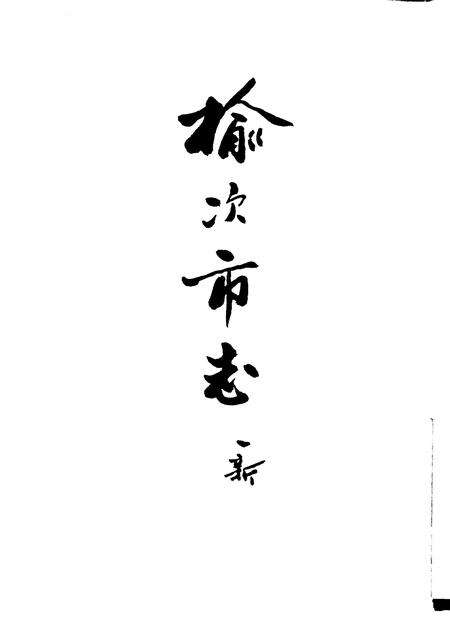 榆次市志
一新